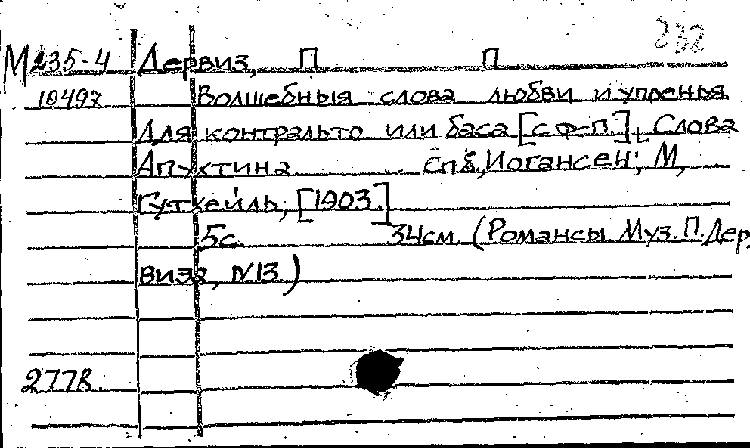 232
М 235-4 Дервиз, П П
10497 Волшебныя слова любви и упренья
Для контральто или баса [с ф-п.], Слова
Апухтина Спб, Иогансен; М,
Гутхейль, [1903.]
5с. 34см. (Романсы Муз. П. Дер
виза, N.13.)
2778.